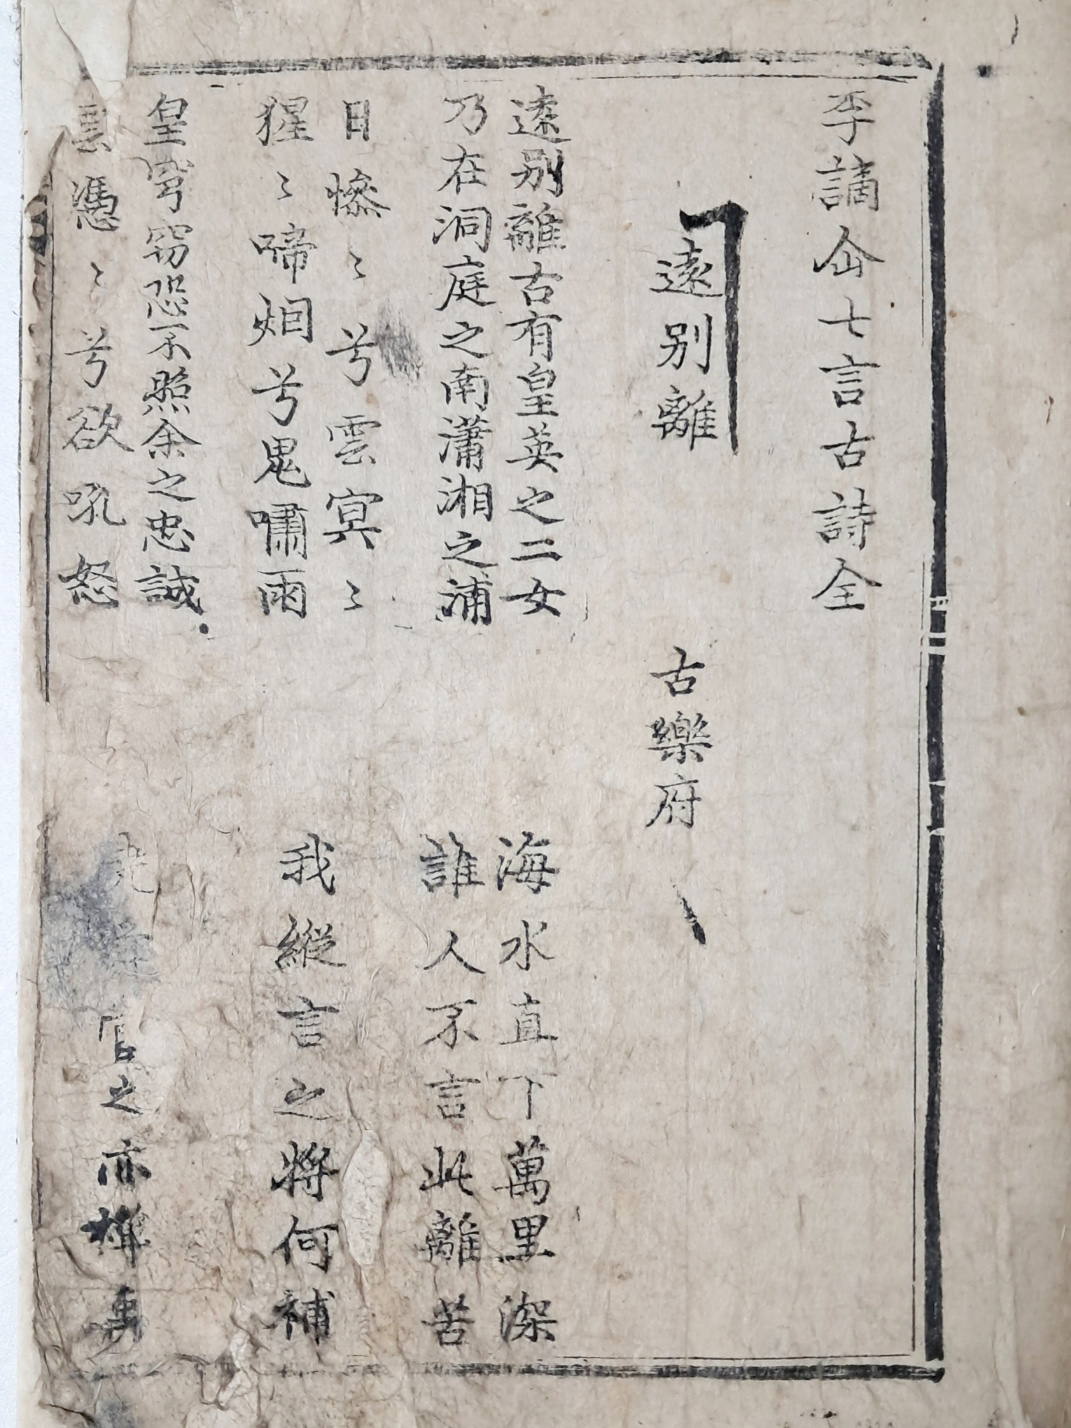 李謫仚七言古詩全
遠别離 古樂府
遠别離古有皇英之二女 海水直下萬里深
乃在洞庭之南瀟湘之浦 誰人不言此離苦
日慘〻兮雲冥〻 我縱言之將何補
猩〻啼烟兮鬼嘯雨
皇穹窃恐不照余之忠誠
雲憑〻兮欲吼怒 堯舜當之亦禅禹